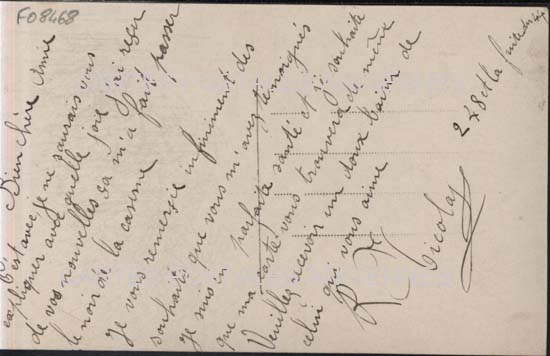 F08468
Bien chère Amie
C'est avec, je ne saurais vous
expliquer avec quelle joie j'ai reçu
de vos nouvelles ça m'a fait passer
le noir de la caserne
Je vous remercie infiniment des
souhaits que vous m'avez témoignés
Je suis en parfaite santé et j'souhaite
que ma carte vous trouvera de même
Veuillez recevoir un doux baiser de
celui qui vous aime
R
Nicolas
la